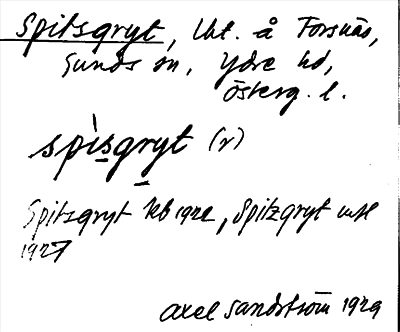 Spitsgryt, lht. å Forsnäs,
Sunds sn, Ydre hd,
Österg. l.
spìsgryt (r)
Spitzgryt Jeb 1922, Spitzgryt
1927
Axel Sandström 1929